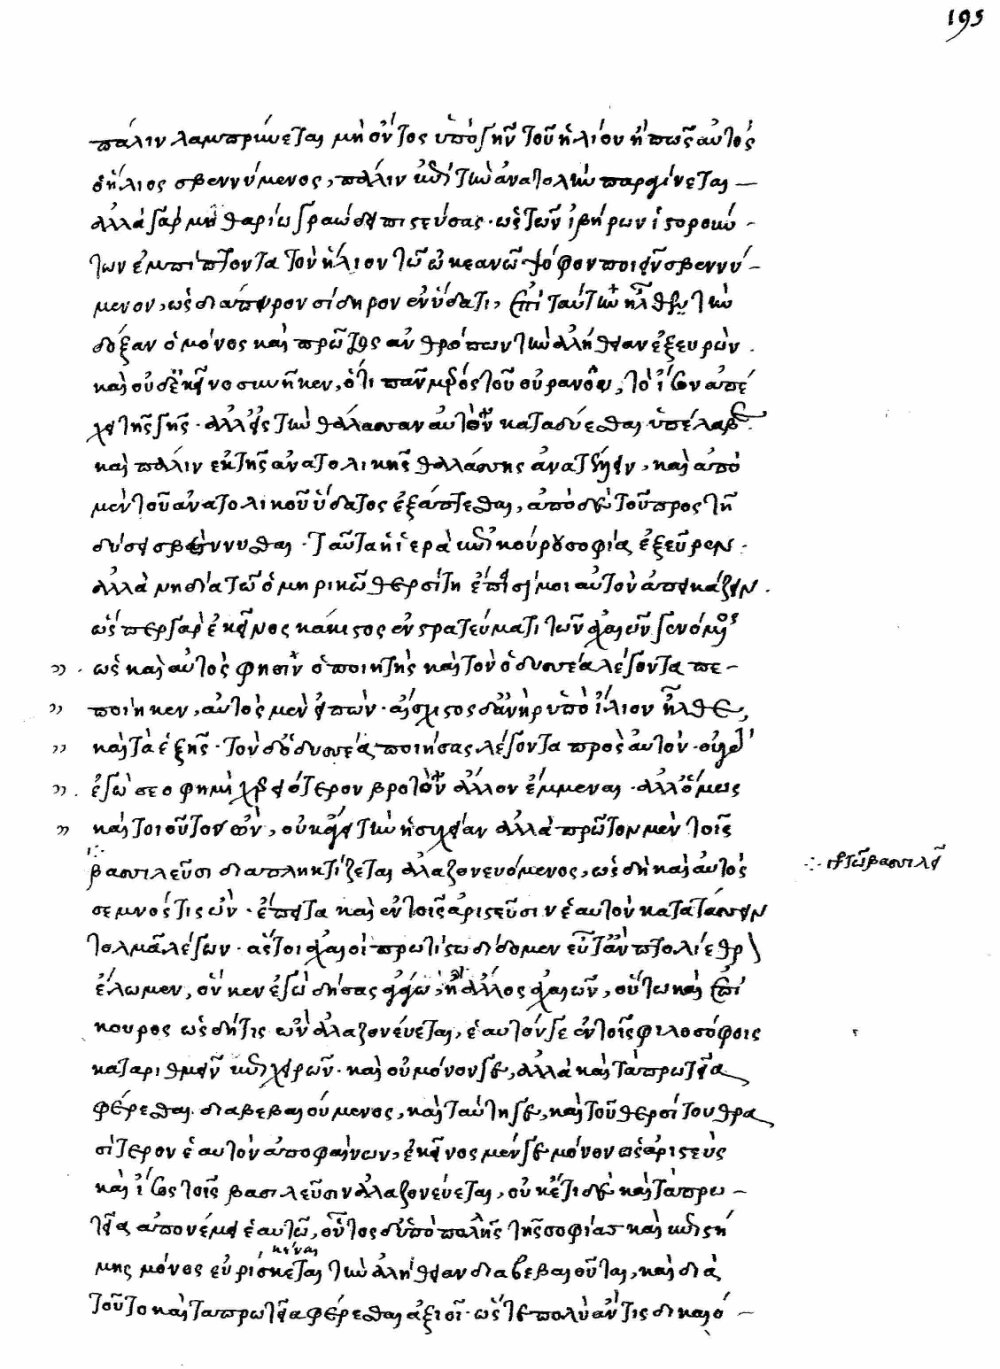 195
πάλιν λαμπρύνεται μὴ ὄντος ὑπὸ γῆν τοῦ ἡλίου ἢ πῶς αὐτὸς
ὁ ἥλιος σβεννύμενος, πάλιν ἐπὶ τὴν ἀνατολὴν παραγίνεται —
ἀλλὰ γὰρ μυθαρίω γραώδει πιστεύσας. ὡς τῶν ἰβήρων ἱστορούν -
των ἐμπίπτοντα τὸν ἥλιον τῶ ὠκεανῶ ψόφον ποιεῖν σβεννύ —
μενον, ὡς διάπυρον σίδηρον ἐν ὕδατι, ἐπὶ ταύτην ἦλθεν τὴν
δόξαν ὁ μόνος καὶ πρῶτος ἀνθρώπων τὴν ἀλήθειαν ἐξευρών.
καὶ οὐδὲ ἐκεῖνο συνῆκεν, ὅτι πᾶν μέρος τοῦ οὐρανοῦ, τὸ ἴσον ἀπέ
χει τῆς γῆς. ἀλλ' εἰς τὴν θάλασσαν αὐτὸν καταδύεσθαι ὑπέλαβε.
καὶ πάλιν ἐκ τῆς ἀνατολικῆς θαλάσσης ἀνατέλλειν, καὶ ἀπὸ
μὲν τοῦ ἀνατολικοῦ ὕδατος ἐξάπτεσθαι, ἀπὸ δὲ τοῦ πρὸς τῆ
δύσει σβέννυσθαι. Ταῦτα ἡ ἱερὰ ἐπικούρου σοφία ἐξεῦρεν.
ἀλλὰ νὴ δία τῶ ὁμηρικῶ θερσίτη ἔπεισί μοι αὐτὸν ἀπεικάζειν.
ὥσπερ γὰρ ἐκεῖνος κάκιστος ἐν στρατεύματι τῶν ἀχαιῶν γενόμενος
ὡς καὶ αὐτὸς φησὶν ὁ ποιητὴς καὶ τὸν ὀδυσσέα λέγοντα πε —
ποίηκεν, αὐτὸς μὲν εἰπών. αἴσχιστος δ' ἀνὴρ ὑπὸ ἴλιον ἦλθε,
καὶ τὰ ἑξῆς. τὸν δ' ὀδυσσέα ποιήσας λέγοντα πρὸς αὐτόν. οὐ γὰρ
ἐγὼ σέο φημὶ χερειότερον βροτὸν ἄλλον ἔμμεναι. ἀλλ' ὅμως
καὶ τοιοῦτος ὤν, οὐκ ἦγε τὴν ἡσυχίαν ἀλλὰ πρῶτον μὲν τοῖς
βασιλεῦσι διαπληκτίζεται ἀλαζονευόμενος, ὡς δὴ καὶ αὐτὸς
∴ τῶ βασιλεῖ
σεμνός τις ὤν. ἔπειτα καὶ ἐν τοῖς ἀριστεῦσιν ἑαυτὸν κατατάσσειν
τολμᾶ λέγων. ἅς τοι ἀχαιοὶ πρωτίστω δίδομεν εὖτ' ἂν πτολίεθρον
ἕλωμεν, ὅν κεν ἐγὼ δήσας ἀγάγω, ἢ ἄλλος ἀχαιῶν, οὕτω καὶ ἐπί
κουρος ὡς δή τις ὢν ἀλαζονεύεται, ἑαυτόν γε ἐν τοῖς φιλοσόφοις
καταριθμεῖν ἐπιχειρῶν. καὶ οὐ μόνον γε, ἀλλὰ καὶ τὰ πρωτεῖα
φέρεσθαι διαβεβαιούμενος, καὶ ταύτη γε, καὶ τοῦ θερσίτου θρα
σύτερον ἑαυτὸν ἀποφαίνων, ἐκεῖνος μέν γε μόνον ὡς ἀριστεὺς
καὶ ἴσος τοῖς βασιλεῦσιν ἀλαζονεύεται, οὐκ ἔτι δὲ καὶ τὰ πρω —
τεῖα ἀπονέμει ἑαυτῶ, οὗτος δ' ὑπὸ πολλῆς τῆς σοφίας καὶ ἐπιστή
μης μόνος εὑρηκέναι τὴν ἀλήθειαν διαβεβαιοῦται, καὶ διὰ
τοῦτο καὶ τὰ πρωτεῖα φέρεσθαι ἀξιοῖ. ὥστε πολὺ ἄν τις δικαιό —